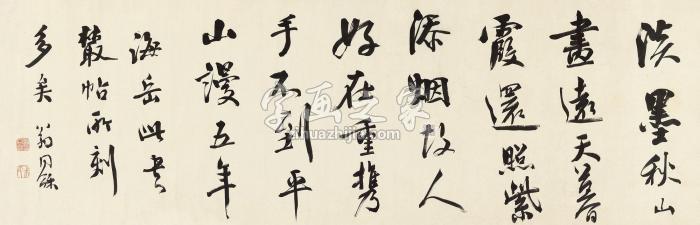 淡墨秋山
畫遠天暮
霞還照紫
添烟故人
好在重携
手不到平
山謾五年
海岳此書
叢帖所刻
多矣 翁同龢
字画之家